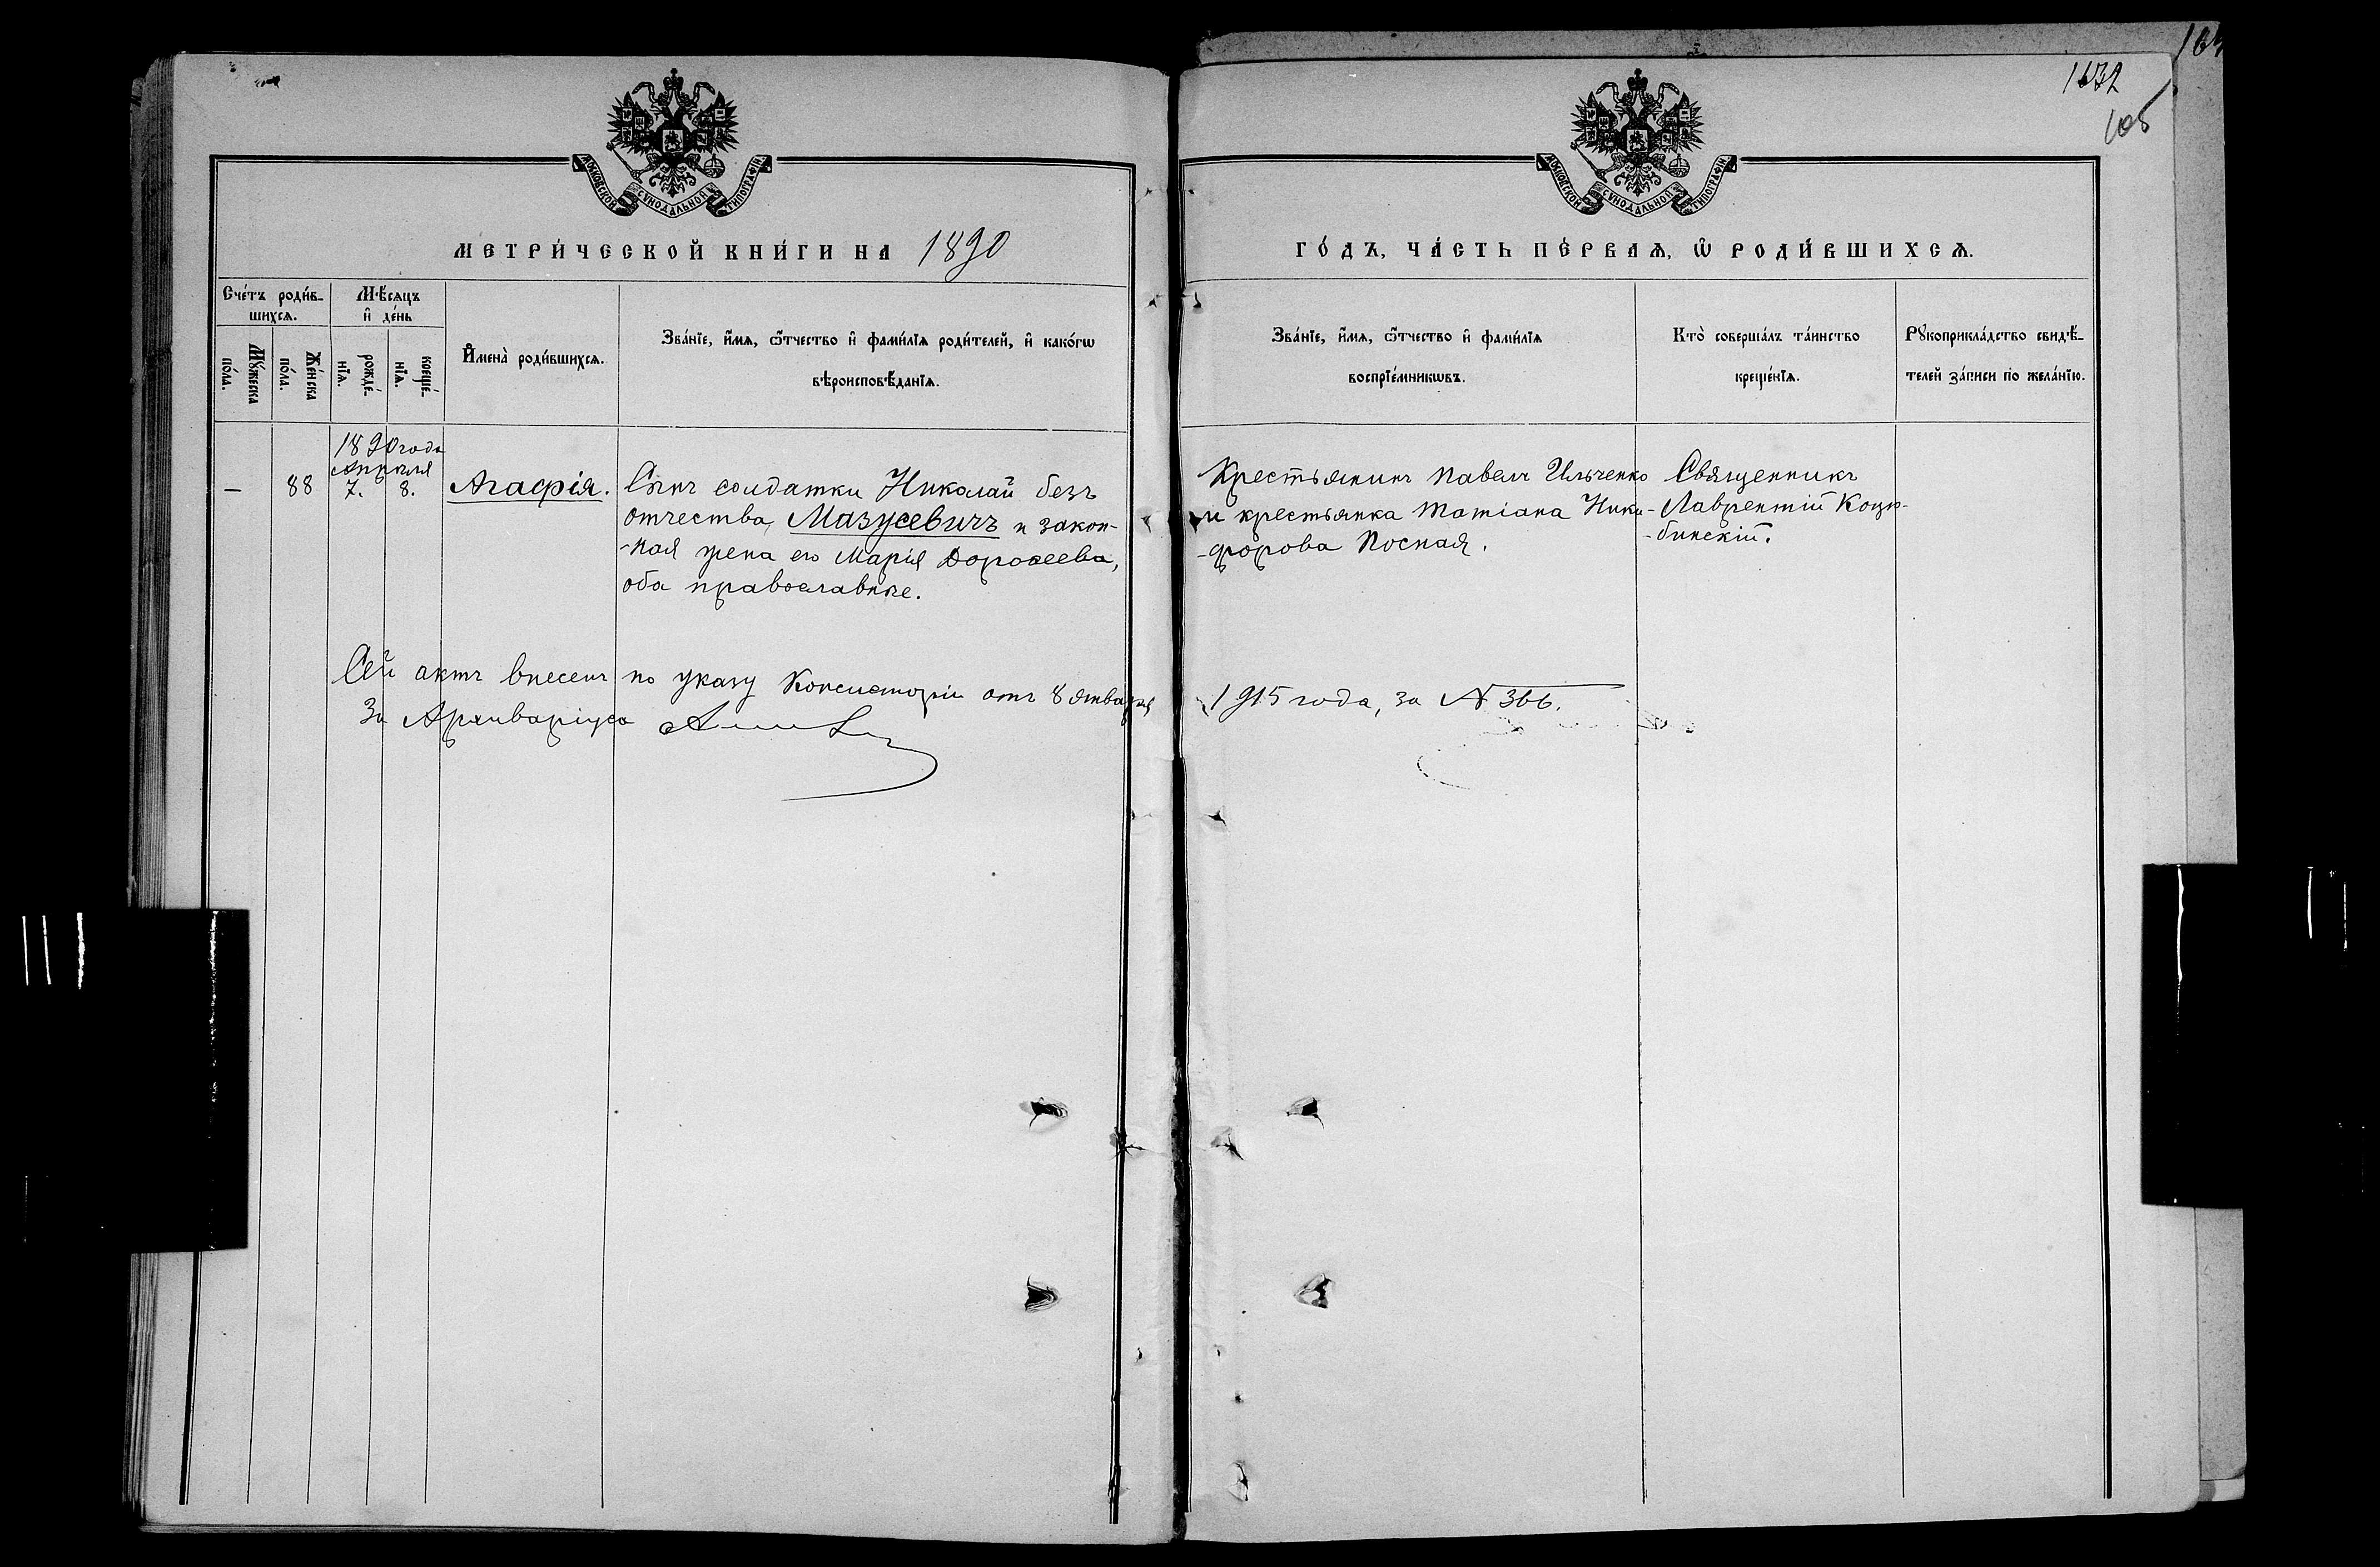 1632
105
МОСКОВСКОЙ СѴНОДАЛЬНОЙ ТИПОГРАФІИ
МОСКОВСКОЙ СѴНОДАЛЬНОЙ ТИПОГРАФІИ
МЕТРИ́ЧЕСКОЙ КНИ́ГИ НА 1890
ГО́ДЪ, ЧА́СТЬ ПЕ́РВАѦ, Ѡ҆ РОДИ́ВШИХСѦ.
Сче́тъ роди́в-
шихсѧ.
Мꙋ́жеска
по́ла.
Же́нска
по́ла.
Мѣ́сѧцъ
и҆ де́нь
рожде́-
нїѧ.
креще́-
нїѧ.
И҆мена̀ роди́вшихсѧ.
Зва́нїе, и҆́мѧ, ѻ҆́тчество и҆ фами́лїѧ роди́телей, и҆ како́гѡ
вѣроисповѣ́данїѧ.
Зва́нїе, и҆́мѧ, ѻ҆́тчество и҆ фами́лїѧ
воспрїе́мникѡвъ.
Кто̀ соверша́лъ та́инство
креще́нїѧ.
Рꙋкоприкла́дство свидѣ́-
телей за́писи по жела́нїю.
1890 года
Апрѣля
— 88 7. 8. Агафія.
Сынъ солдатки Николай безъ
отчества, Мазусевичъ и закон-
-ная жена его Марія Дороѳеева,
оба православные.
Крестьянинъ Павелъ Ильченко
и крестьянка Татіана Ники-
-форова Посная.
Священникъ
Лаврентій Коцю-
-бинскій.
Сей актъ внесенъ по указу Консисторіи отъ 8 января 1915 года, за № 366.
За Архиваріуса